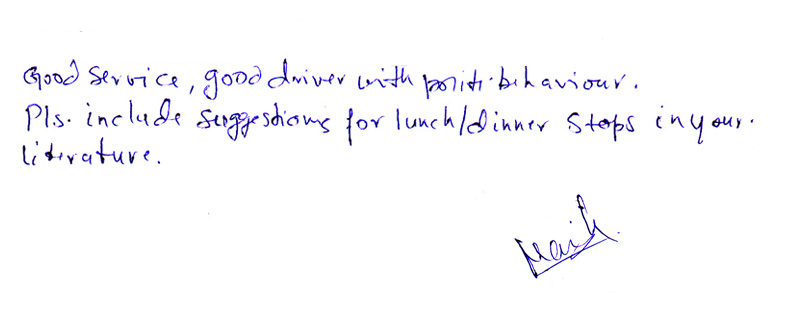 Good service, good driver with politi behaviour.
Pls. include suggestions for lunch/dinner stops in your.
literature.